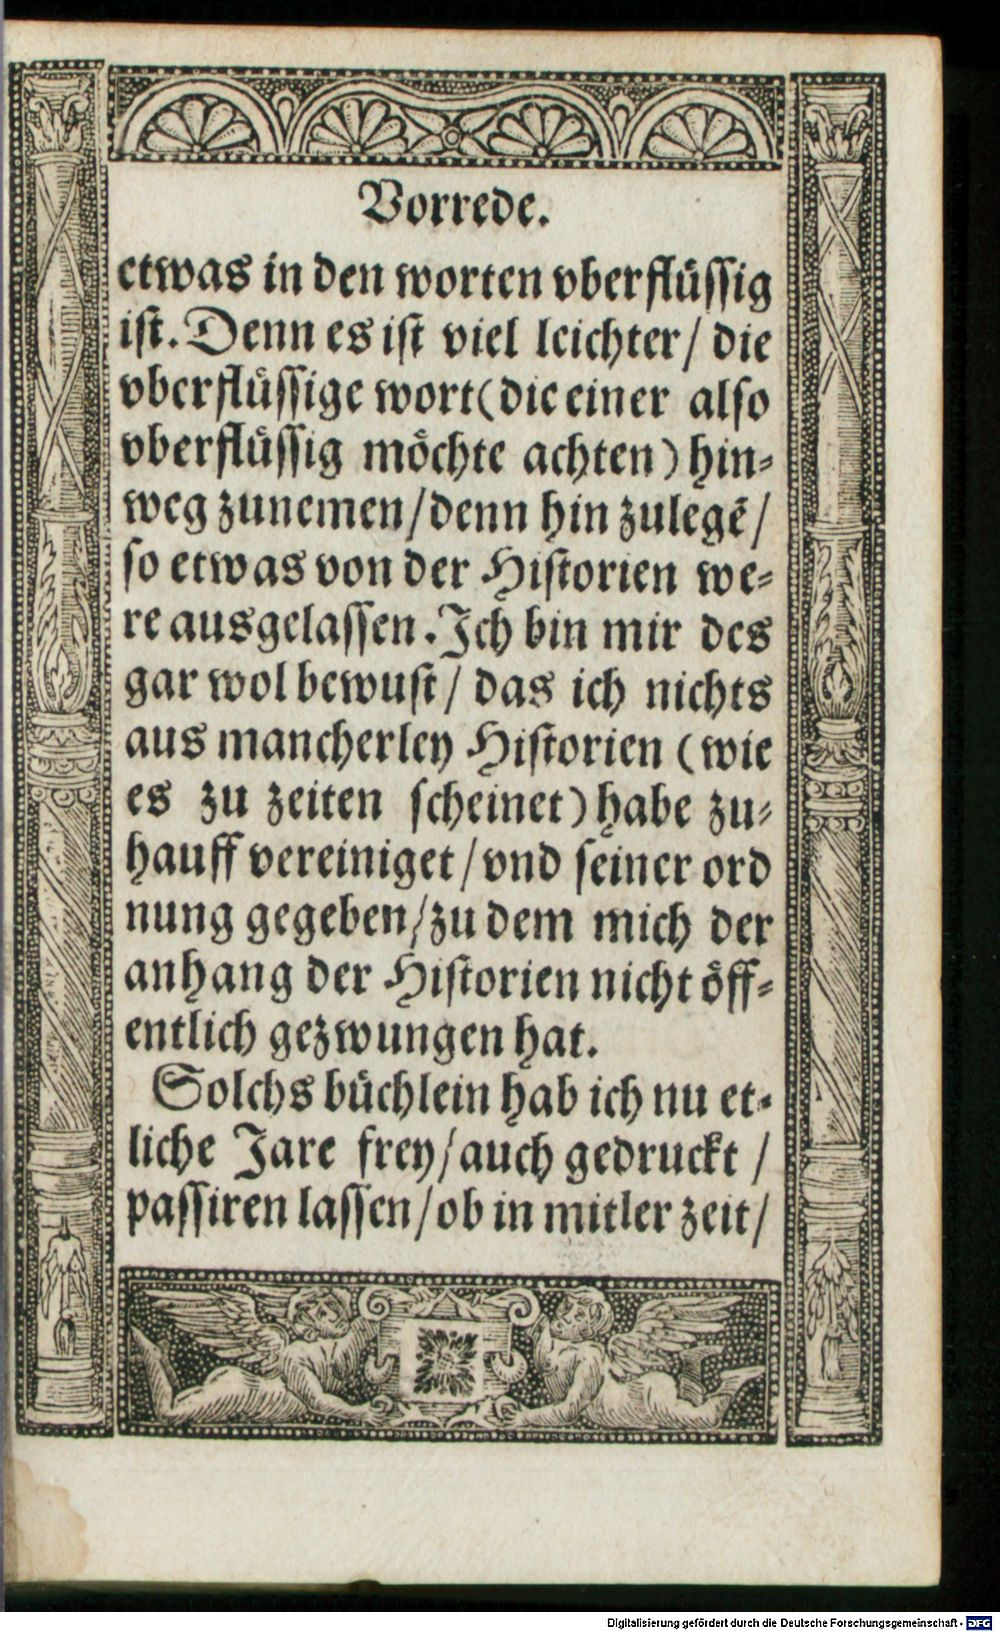 Vorrede.
etwas in den worten vberflüssig
ist. Denn es ist viel leichter/ die
vberflüssige wort (die einer also
vberflüssig möchte achten) hin-
weg zunemen/ denn hin zulegē/
so etwas von der Historien we-
re ausgelassen. Ich bin mir des
gar wol bewust/ das ich nichts
aus mancherley Historien (wie
es zu zeiten scheinet) habe zu-
hauff vereiniget/ vnd seiner ord
nung gegeben/ zu dem mich der
anhang der Historien nicht öff-
entlich gezwungen hat.
Solchs büchlein hab ich nu et-
liche Jare frey/ auch gedruckt/
passiren lassen/ ob in mitler zeit/
Digitalisierung gefördert durch die Deutsche Forschungsgemeinschaft - DFG